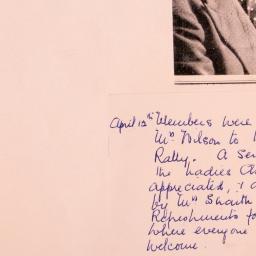 April 12th Members were
Mrs Wilson to
Rally. A Ser
the Ladies
appreciated, & a
by Mrs Smith
Refreshments fo
where everyone
welcome.